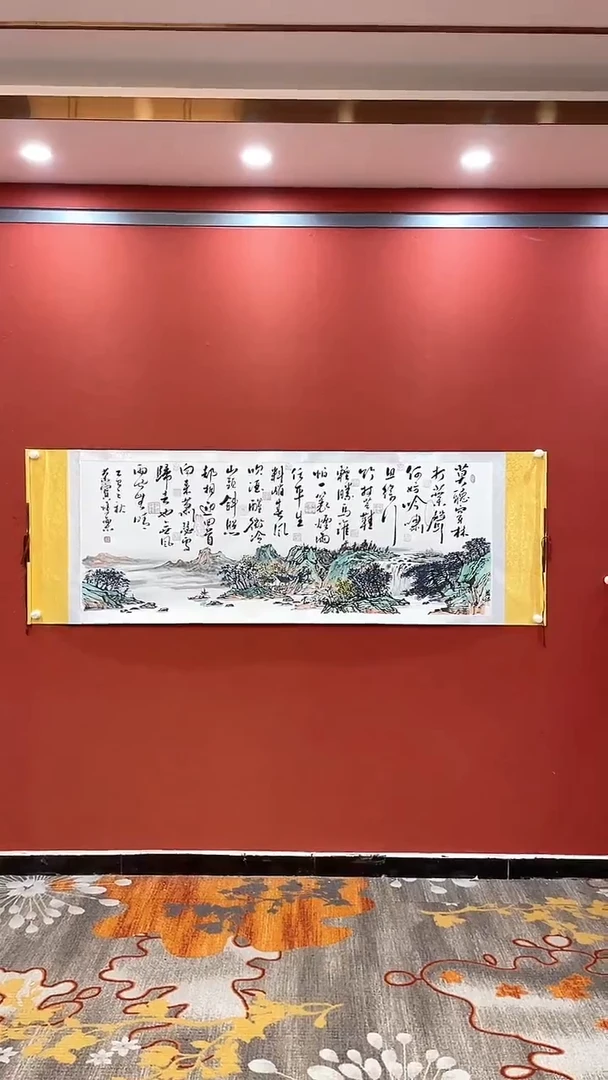 莫聽穿林
打葉聲
何妨吟嘯
且徐行
竹杖芒鞋
輕勝馬誰
怕一蓑煙雨
任平生
料峭春風
吹酒醒微冷
山頭斜照
却相迎回首
向來蕭瑟處
歸去也無風
雨也無晴